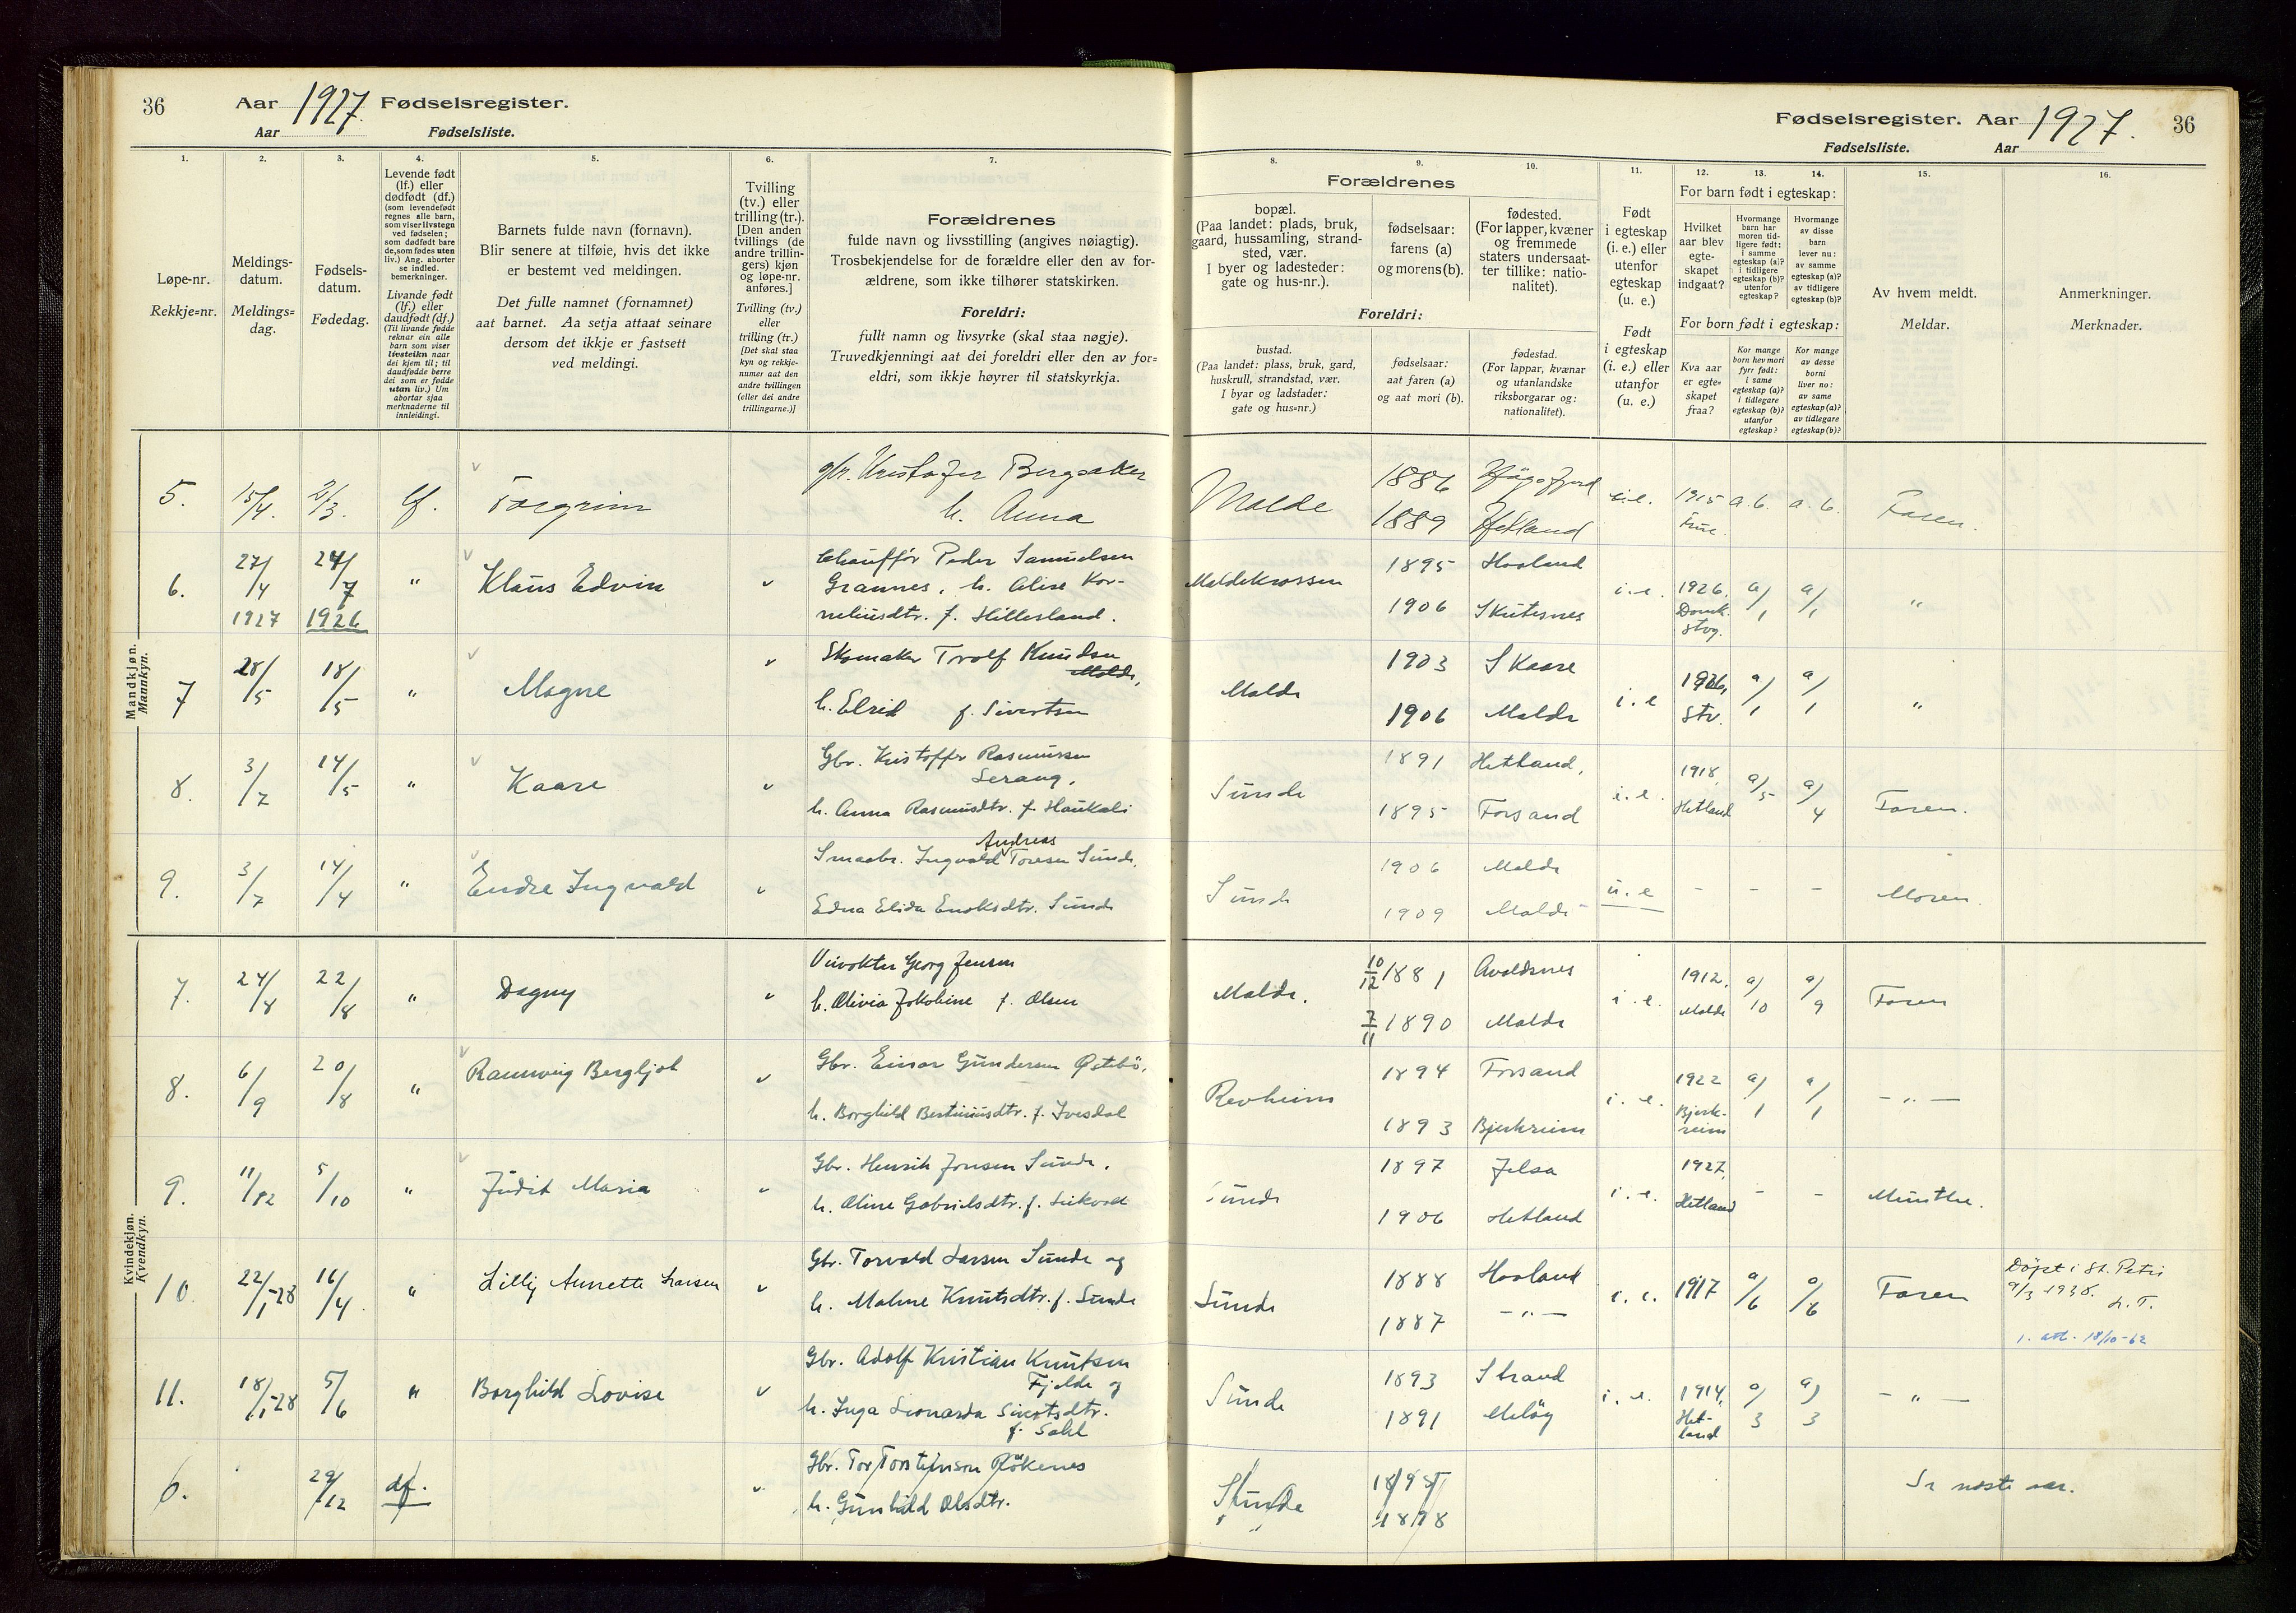 36 Aar 1927. Fødselsregister.
Aar Fødselsliste.
1. 2. 3. 4. 5. 6. 7.
Løpe-nr.
Rekkje=nr.
Meldings-
datum.
Meldings=
dag.
Fødsels-
datum.
Fødedag.
Levende født
(lf.) eller
dødfødt (df.)
(som levendefødt
regnes alle barn,
som viser livstegn
ved fødselen;
som dødfødt bare
de, som fødes uten
liv.) Ang. aborter
se indled.
bemerkninger.
Livande født
(lf.) eller
daudfødt (df.)
(Til livande fødde
reknar ein alle
barn som viser
livsteikn naar
dei kjem til; til
daudfødde berre
dei som er fødde
utan liv.) Um
abortar sjaa
merknaderne til
innleidingi.
Barnets fulde navn (fornavn).
Blir senere at tilføie, hvis det ikke
er bestemt ved meldingen.
Det fulle namnet (fornamnet)
aat barnet. Aa setja attaat seinare
dersom det ikkje er fastsett
ved meldingi.
Tvilling
(tv.) eller
trilling (tr.).
[Den anden
tvillings (de
andre trillin-
gers) kjøn
og løpe-nr.
anføres.]
Tvilling (tv.)
eller
trilling (tr.)
[Det skal staa
kyn og rekkje-
numer aat den
andre tvillingen
(eller dei andre
trillingarne.)]
Forældrenes
fulde navn og livsstilling (angives nøiagtig).
Trosbekjendelse for de forældre eller den av for-
ældrene, som ikke tilhører statskirken.
Foreldri:
fullt namn og livsyrke (skal staa nøgje).
Truvedkjenningi aat dei foreldri eller den av for=
eldri, som ikkje høyrer til statskyrkja.
Mandkjøn.
Mannkyn.
5. 15/4. 2/3. lf. Torgrim
gbr. Kristofer Bergsaker
h. Anna
6. 27/4 1927 24/7 1926 " Klaus Edvin "
Chauffør Peder Samuelsen
Grannes, h. Alise Kor-
neliusdtr. f. Hillesland.
7 28/5 18/5 " Magne "
Skomaker Trolf Knudsen
Malde,
h. Elrid f. Sivertsen
8. 3/7 14/5 " Kaare "
Gbr. Kristoffer Rasmussen
Serang,
h. Anna Rasmusdtr. f. Haukali
9. 3/7 14/4 " Endre Ingvald "
Andreas
Smaabr. Ingvald Toresen Sunde,
Edna Elida Enoksdtr. Sunde
Kvindekjøn.
Kvendkyn.
7. 24/8 22/8 " Dagny "
Georg Jensen
h. Olivia Jakobine f. Olsen
8. 6/9 20/8 " Raunveig Bergljot "
Gbr. Einar Gundersen Østebö,
h. Borghild Bertinusdtr. f. Ivesdal
9. 11/12 5/10 " Judit Maria "
Gbr. Henrik Jonsen Sunde,
h. Oline Gabrielsdtr. f.
10. 22/1-28 16/4 " Lilly Annette Larsen "
Gbr. Torvald Larsen Sunde og
h. Malene Knutsdtr. f. Sunde
11. 18/1-28 5/6 " Borghild Lovise "
Gbr. Adolf Kristian Knutsen
Fjelde og
h. Inga Leonarda Sivertsdtr.
f. Sahl
6. 29/12 df. "
Gbr. Tor Torsteinson Rökenes
h. Gunhild Olsdtr.
Fødselsregister. Aar 1927. 36
Fødselsliste. Aar
8. 9. 10. 11. 12. 13. 14. 15. 16.
Forældrenes
bopæl.
(Paa landet: plads, bruk,
gaard, hussamling, strand-
sted, vær.
I byer og ladesteder:
gate og hus-nr.).
fødselsaar:
farens (a)
og morens (b).
fødested.
(For lapper, kvæner
og fremmede
staters undersaat-
ter tillike: natio-
nalitet).
Foreldri:
bustad.
(Paa landet: plass, bruk, gard,
huskrull, strandstad, vær.
I byar og ladstader:
gate og hus=nr.)
fødselsaar:
aat faren (a)
og aat mori (b).
fødestad.
(For lappar, kvænar
og utanlandske
riksborgarar og:
nationalitet).
Født
i egteskap
(i. e.) eller
utenfor
egteskap
(u. e.)
Født
i egteskap
(i. e.) eller
utanfor
(u. e.)
For barn født i egteskap:
Hvilket
aar blev
egte-
skapet
indgaat?
Hvormange
barn har
moren tid-
ligere født:
i samme
egteskap (a)?
i tidligere
egteskap (b)?
utenfor
egteskap?
Hvormange
av disse
barn
lever nu:
av samme
egteskap (a)?
av tidligere
egteskap (b)?
For born født i egteskap:
Kva aar
er egte=
skapet
fraa?
Kor mange
born hev mori
fyrr født:
i same
egteskap (a)?
i tidlegare
egteskap (b)?
utanfor
egteskap?
Kor mange
av desse
borni
liver no:
av same
egteskap (a)?
av tidlegare
egteskap (b)?
Av hvem meldt.
Meldar.
Anmerkninger.
Merknader.
Malde 1886 Høgsfjord i.e. 1915 a. 6. a. 6. Faren.
1889 Hetland
Maldekrossen 1895 Haaland i.e. 1926, a/1 a/1 "
1906 Skutesnes Domk. Stvg.
Malde 1903 Skaare i.e 1926, a/1 a/1 "
1906 Malde Stv.
Sunde 1891 Hetland, i.e. 1918, a/5 a/4 Faren.
1895 Forsand Hetland
Sunde 1906 Malde u.e - - - Moren.
1909 Malde
Malde. 10/12 1881 Avaldsnes i.e. 1912, a/10 a/9 Faren
7/11 1890 Malde Malde
Revheim 1894 Forsand i.e. 1922 a/1 a/1 - " -
1893 Bjerkreim Bjerk-
reim
Sunde 1897 Jelsa i.e. 1927, - - Munthe.
1906 Hetland Hetland
Sunde 1888 Haaland i.e. 1917 a/6 a/6 Faren
1887 - " -
Döpt i St. Petri
9/3 1938. L. T.
1. att. 18/10-62
Sunde 1893 Strand i.e. 1914, a/3 a/3 - " -
1891 Meløy Het-
land
Sunde 1895
1898
Se neste aar.